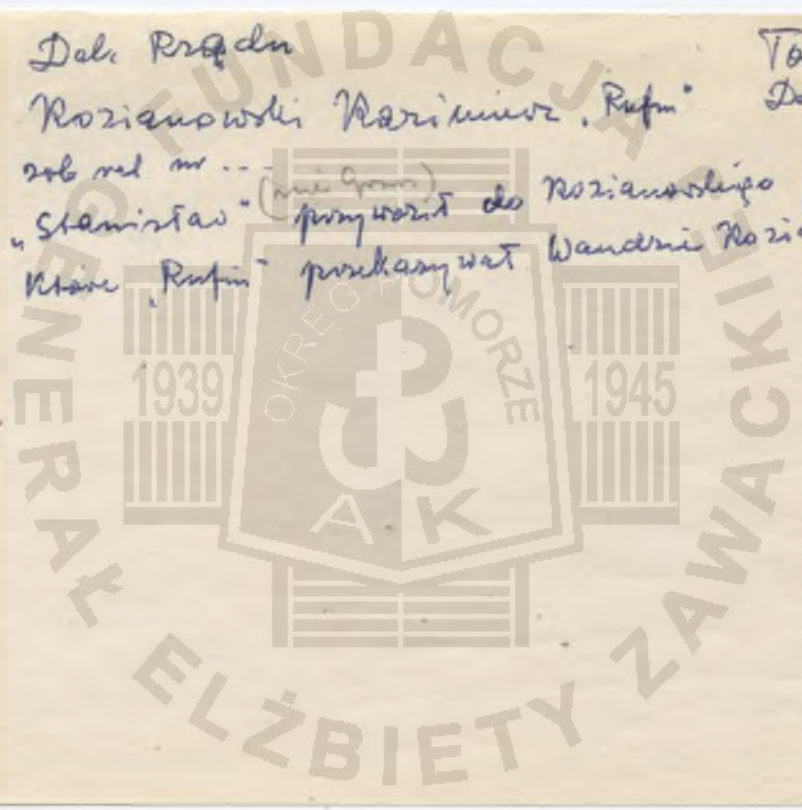 Del. Rządu
To
Rozianowski Kazimierz „Rufin"
De
zob rel nr ...
„Stanisław" przywoził do Rozianowskiego
które „Rufin" przekazywał Wandzie Rozia
FUNDACJA
GENERAŁ ELŻBIETY ZAWACKIEJ
OKRĘG POMORZE
1939
1945
AK